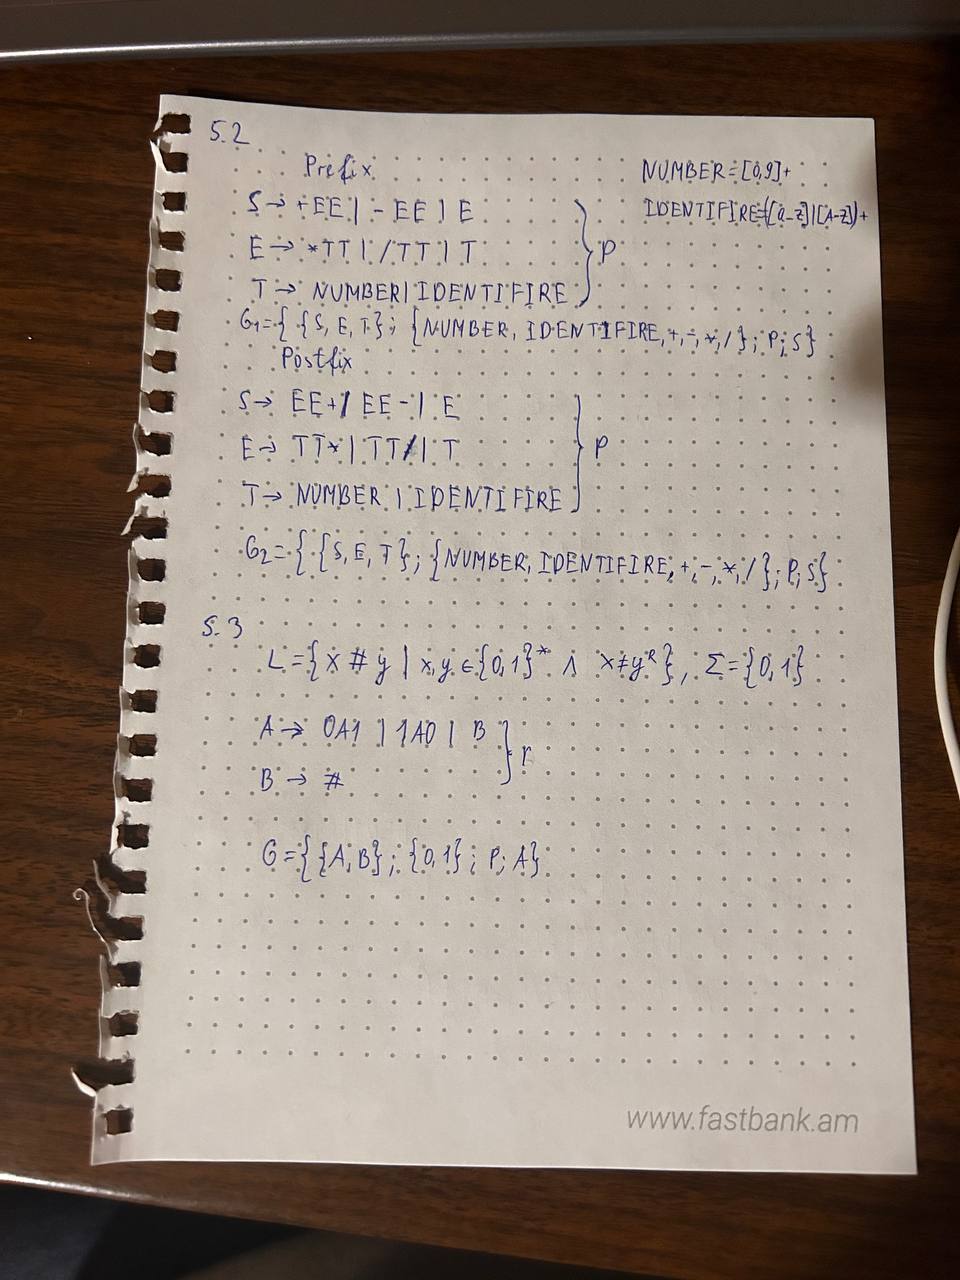 5.2
Prefix
NUMBER=[0,9]+
S→ +EE | - EE | E
IDENTIFIRE=([a-z]|[A-Z])+
E → *TT | /TT | T
P
T → NUMBER| IDENTIFIRE
G₁={ {S, E, T}; {NUMBER, IDENTIFIRE,+,-,*,/}; P; S}
Postfix
S→ EE+| EE -| E
E→ TT*| TT/| T
P
T→ NUMBER | IDENTIFIRE
G₂={ {S, E, T}; {NUMBER, IDENTIFIRE,+,-,*,/}; P; S}
5.3
L={x # y | x,y ∈{0,1}* ∧ x≠yᴿ}, Σ={0,1}
A→ 0A1 | 1A0 | B
P
B → #
G={{A,B}; {0,1}; P; A}
www.fastbank.am